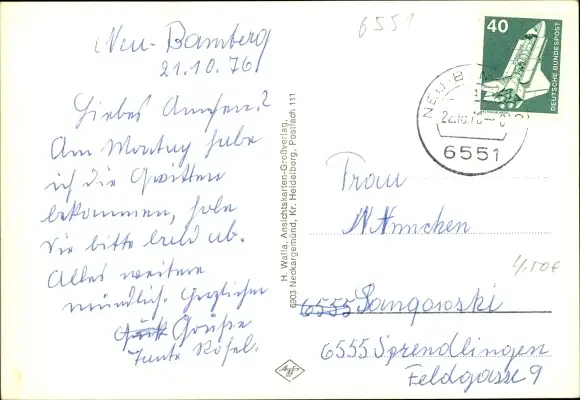 Neu-Bamberg
21.10.76
Liebes Annchen!
Am Montag habe
ich die Quitten
bekommen, hole
sie bitte bald ab.
Alles weitere
mündlich. Herzlichen
Grüße
Tante Rösel.
H. Walla, Ansichtskarten-Großverlag,
6903 Neckargemünd, Kr. Heidelberg, Postfach 111
Agfa
6551
40
DEUTSCHE BUNDESPOST
NEU-BAMBERG
22.10.76
6551
Frau
Annchen
4,50€
6555 Sangowski
6555 Sprendlingen
Feldgasse 9